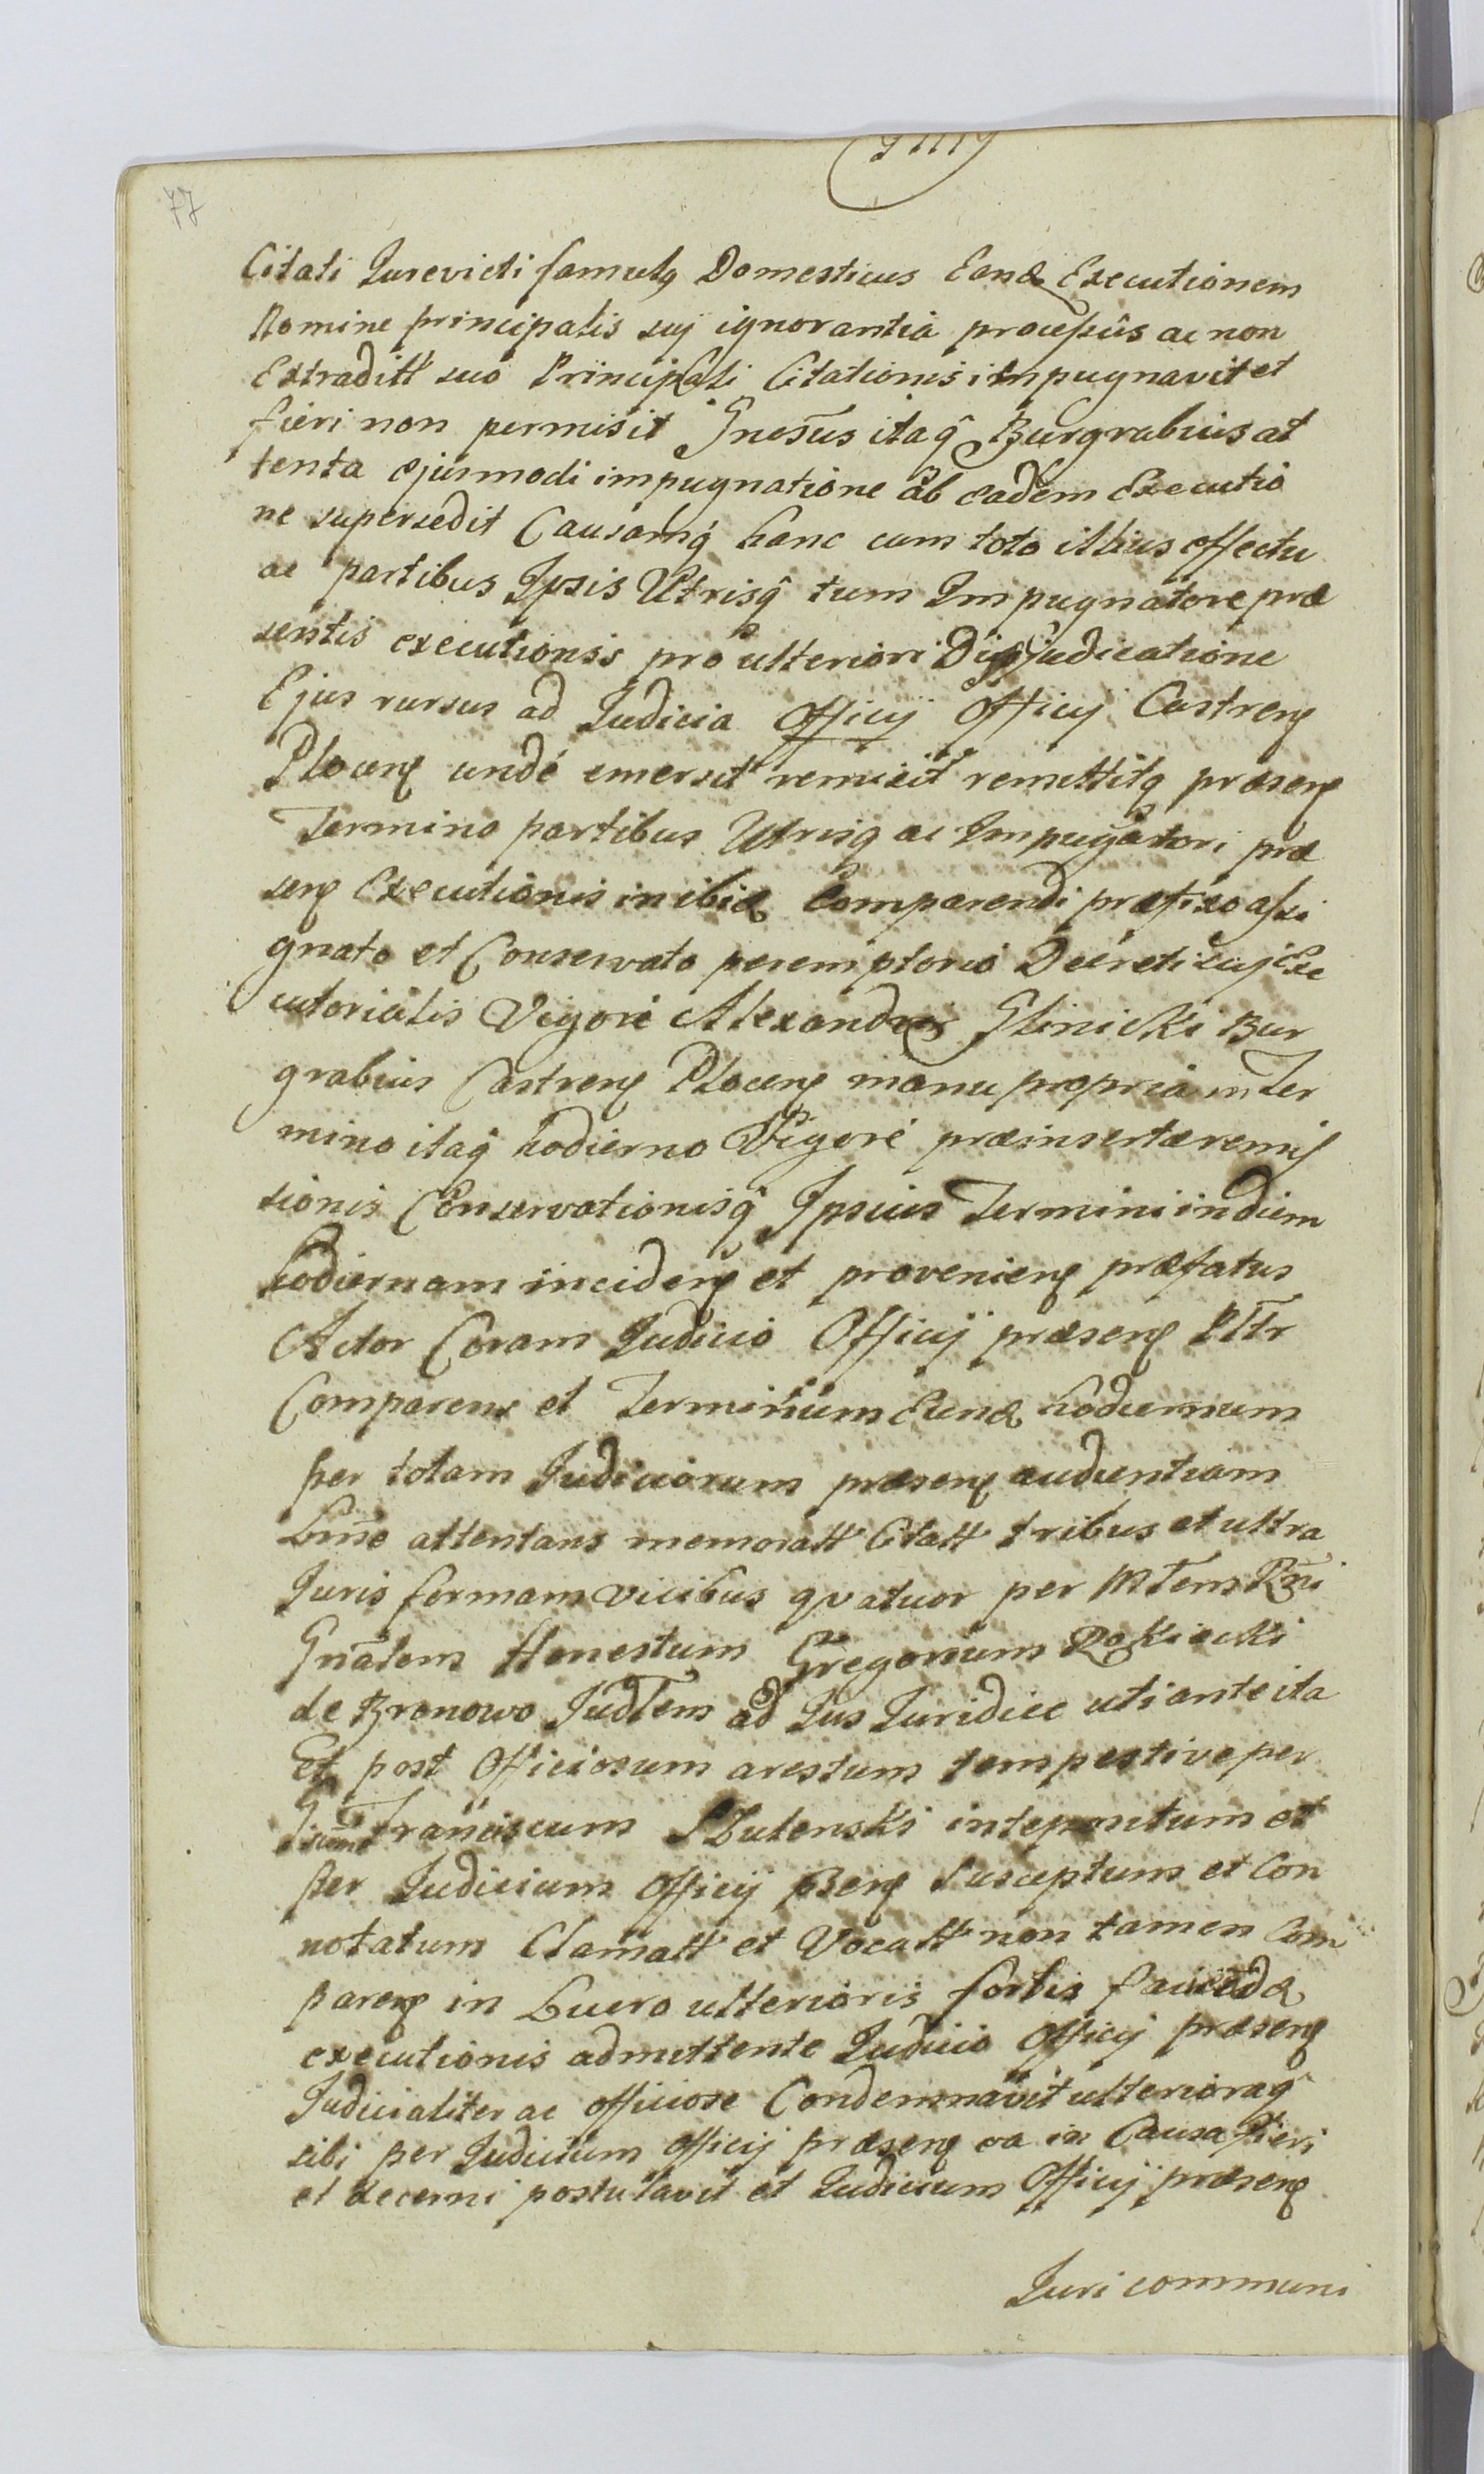 77
Citati Jurevicti famulq Domesticus Eand Executionem
Nomine principalis suj ignorantia processus ac non
Extraditt suo Principali Citationis impugnavit et
fieri non permisit Gnosus itaq Burgrabius at
tenta ejusmodi impugnatione ab eadem Executio
ne supersedit Causamq hanc cum toto illius effectu
ac partibus Ipsis Utrisq tum Impugnatore præ
sentis executionis pro ulteriori Dijudicatione
Ejus rursus ad Judicia Officij Officij Castrens
Plocens unde emersit remisit remittitq præsens
Termino partibus Utrisq ac Impugnatori præ
sens Executionis inibid Comparendi præfixo assi
gnato et Conservato peremptorio Decreti suj Exe
cutorialis Vigore Alexander Glinicki Bur
grabius Castrens Plocens manu propria in Ter
mino itaq hodierno Vigore præinsertæ remis
sionis Conservationisq Ipsius Termini in diem
hodiernam incidens et proveniens præfatus
Actor Coram Judicio Officij præsens Pttr
Comparens et Terminum Eund hodiernum
per totam Judiciorum præsens audientiam
Lime attentans memoratt Citatt tribus et ultra
Juris formam vicibus qvatuor per Mtem Rni
Gnalem Honestum Gregorium Rokicki
de Bronowo Judtem ad Jus Juridice uti ante ita
Et post Officiosum arestum tempestive per
Franciscum Zutenski intepositum et
per Judicium Officij psens Susceptum et Con
notatum Clamatt et Vocatt non tamen Com
parens in Lucro ulterioris fortis faciend
executionis admittente Judicio Officij præsens
Judicialiter ac officiose Condemnavit ulterioraq
sibi per Judicium Officij præsens ea in Causa Fieri
et decerni postulavit et Judicium Officij præsens
Juri communi